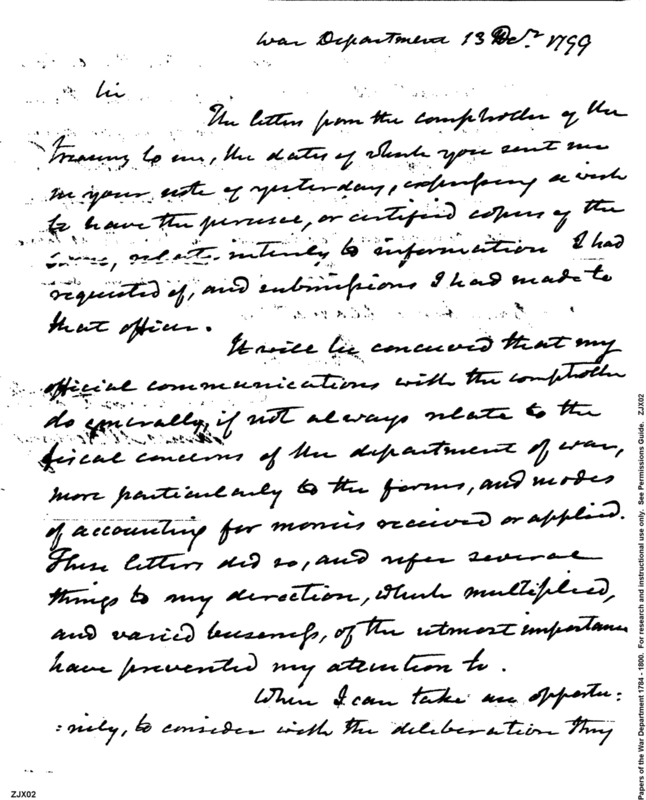 War Department 13 Decr. 1799
Sir
The letters from the comptroller of the
Treasury to me, the dates of which you sent me
in your note of yesterday, expressing a wish
to have the perusal, or certified copies of the
same, relate intirely to information I had
requested of, and submissions I had made to
that officer.
It will be conceived that my
official communications with the comptroller
do generally, if not always relate to the
fiscal concerns of the department of war,
more particularly to the forms, and modes
of accounting for monies received or applied.
These letters did so, and refer several
things to my direction, which multiplied,
and varied business, of the utmost importance
have prevented my attention to.
When I can take an opportu:
:nity, to consider with the deliberation they
ZJX02
Papers of the War Department 1784 - 1800. For research and instructional use only. See Permissions Guide. ZJX02